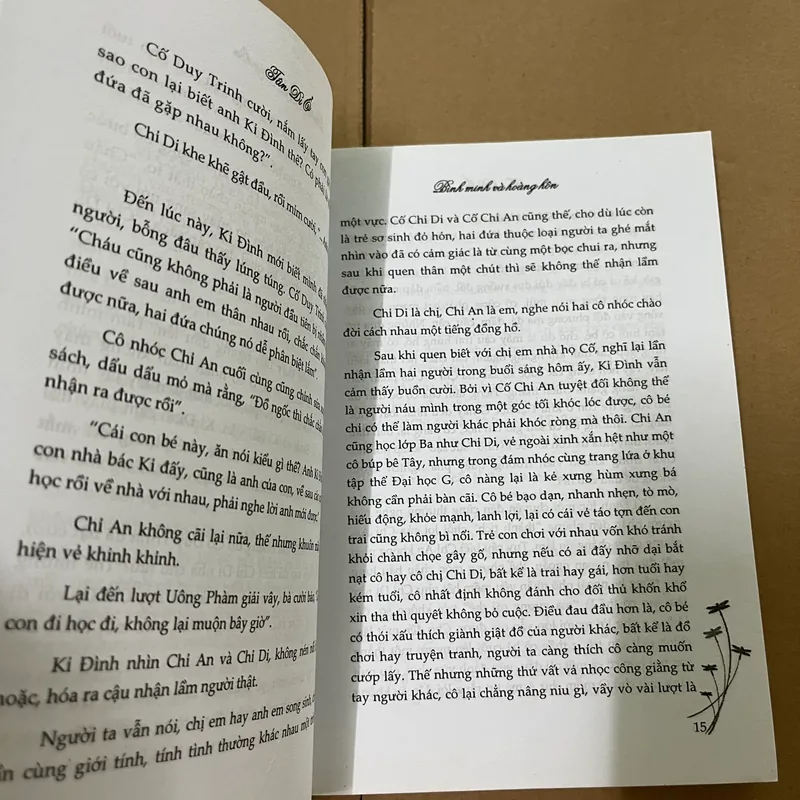 Tân Di Ổ
Cố Duy Trinh cười, nắm lấy tay con
sao con lại biết anh Kỉ Đình thế? Có phải
đứa đã gặp nhau không?”.
Chỉ Di khe khẽ gật đầu, rồi mỉm cười,
Đến lúc này, Kỉ Đình mới biết mình đã
người, bỗng đâu thấy lúng túng. Cố Duy Trinh
“Cháu cũng không phải là người đầu tiên bị nhầm
điểu về sau anh em thân nhau rồi, chắc chắn
được nữa, hai đứa chúng nó dễ phân biệt lắm”.
Cô nhóc Chỉ An cuối cùng cũng chỉnh sửa
sách, dẩu dẩu mỏ mà rằng, “Đồ ngốc thì chắc chắn
nhận ra được rồi”.
“Cái con bé này, ăn nói kiểu gì thế? Anh Kỉ
con nhà bác Kỉ đấy, cũng là anh của con, về sau các
học rồi về nhà với nhau, phải nghe lời anh mới được,”
Chỉ An không cãi lại nữa, thế nhưng khuôn
hiện vẻ khinh khỉnh.
Lại đến lượt Uông Phàm giải vây, bà cười bảo,
con đi học đi, không lại muộn bây giờ”.
Kỉ Đình nhìn Chỉ An và Chỉ Di, không nén
hoặc, hóa ra cậu nhận lầm người thật.
Người ta vẫn nói, chị em hay anh em song sinh,
cùng giới tính, tính tình thường khác nhau một
Bình minh và hoàng hôn
một vực. Cố Chỉ Di và Cố Chỉ An cũng thế, cho dù lúc còn
là trẻ sơ sinh đỏ hỏn, hai đứa thuộc loại người ta ghé mắt
nhìn vào đã có cảm giác là từ cùng một bọc chui ra, nhưng
sau khi quen thân một chút thì sẽ không thể nhận lầm
được nữa.
Chỉ Di là chị, Chỉ An là em, nghe nói hai cô nhóc chào
đời cách nhau một tiếng đồng hồ.
Sau khi quen biết với chị em nhà họ Cố, nghĩ lại lần
nhận lầm hai người trong buổi sáng hôm ấy, Kỉ Đình vẫn
cảm thấy buồn cười. Bởi vì Cố Chỉ An tuyệt đối không thể
là người náu mình trong một góc tối khóc lóc được, cô bé
chỉ có thể làm người khác phải khóc ròng mà thôi. Chỉ An
cũng học lớp Ba như Chỉ Di, vẻ ngoài xinh xắn hệt như một
cô búp bê Tây, nhưng trong đám nhóc cùng trang lứa ở khu
tập thể Đại học G, cô nàng lại là kẻ xưng hùm xưng bá
không cần phải bàn cãi. Cô bé bạo dạn, nhanh nhẹn, tò mò,
hiếu động, khỏe mạnh, lanh lợi, lại có cái vẻ táo tợn đến con
trai cũng không bì nổi. Trẻ con chơi với nhau vốn khó tránh
khỏi chành chọe gây gổ, nhưng nếu có ai đấy nhỡ dại bắt
nạt cô hay cô chị Chỉ Di, bất kể là trai hay gái, hơn tuổi hay
kém tuổi, cô nhất định không đánh cho đối thủ khốn khổ
xin tha thì quyết không bỏ cuộc. Điều đau đầu hơn là, cô bé
có thói xấu thích giành giật đồ của người khác, bất kể là đồ
chơi hay truyện tranh, người ta càng thích cô càng muốn
cướp lấy. Thế nhưng những thứ vất vả nhọc công giằng từ
tay người khác, cô lại chẳng nâng niu gì, vầy vò vài lượt là
15